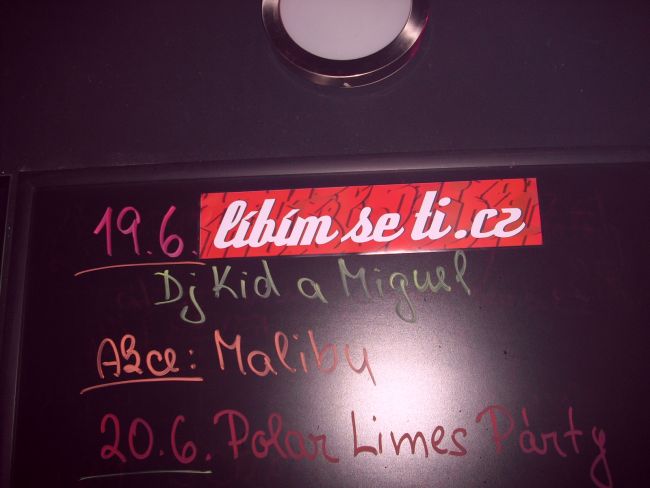 19.6. líbím se ti.cz
Dj Kid a Miguel
Akce: Malibu
20.6. Polar Limes Párty